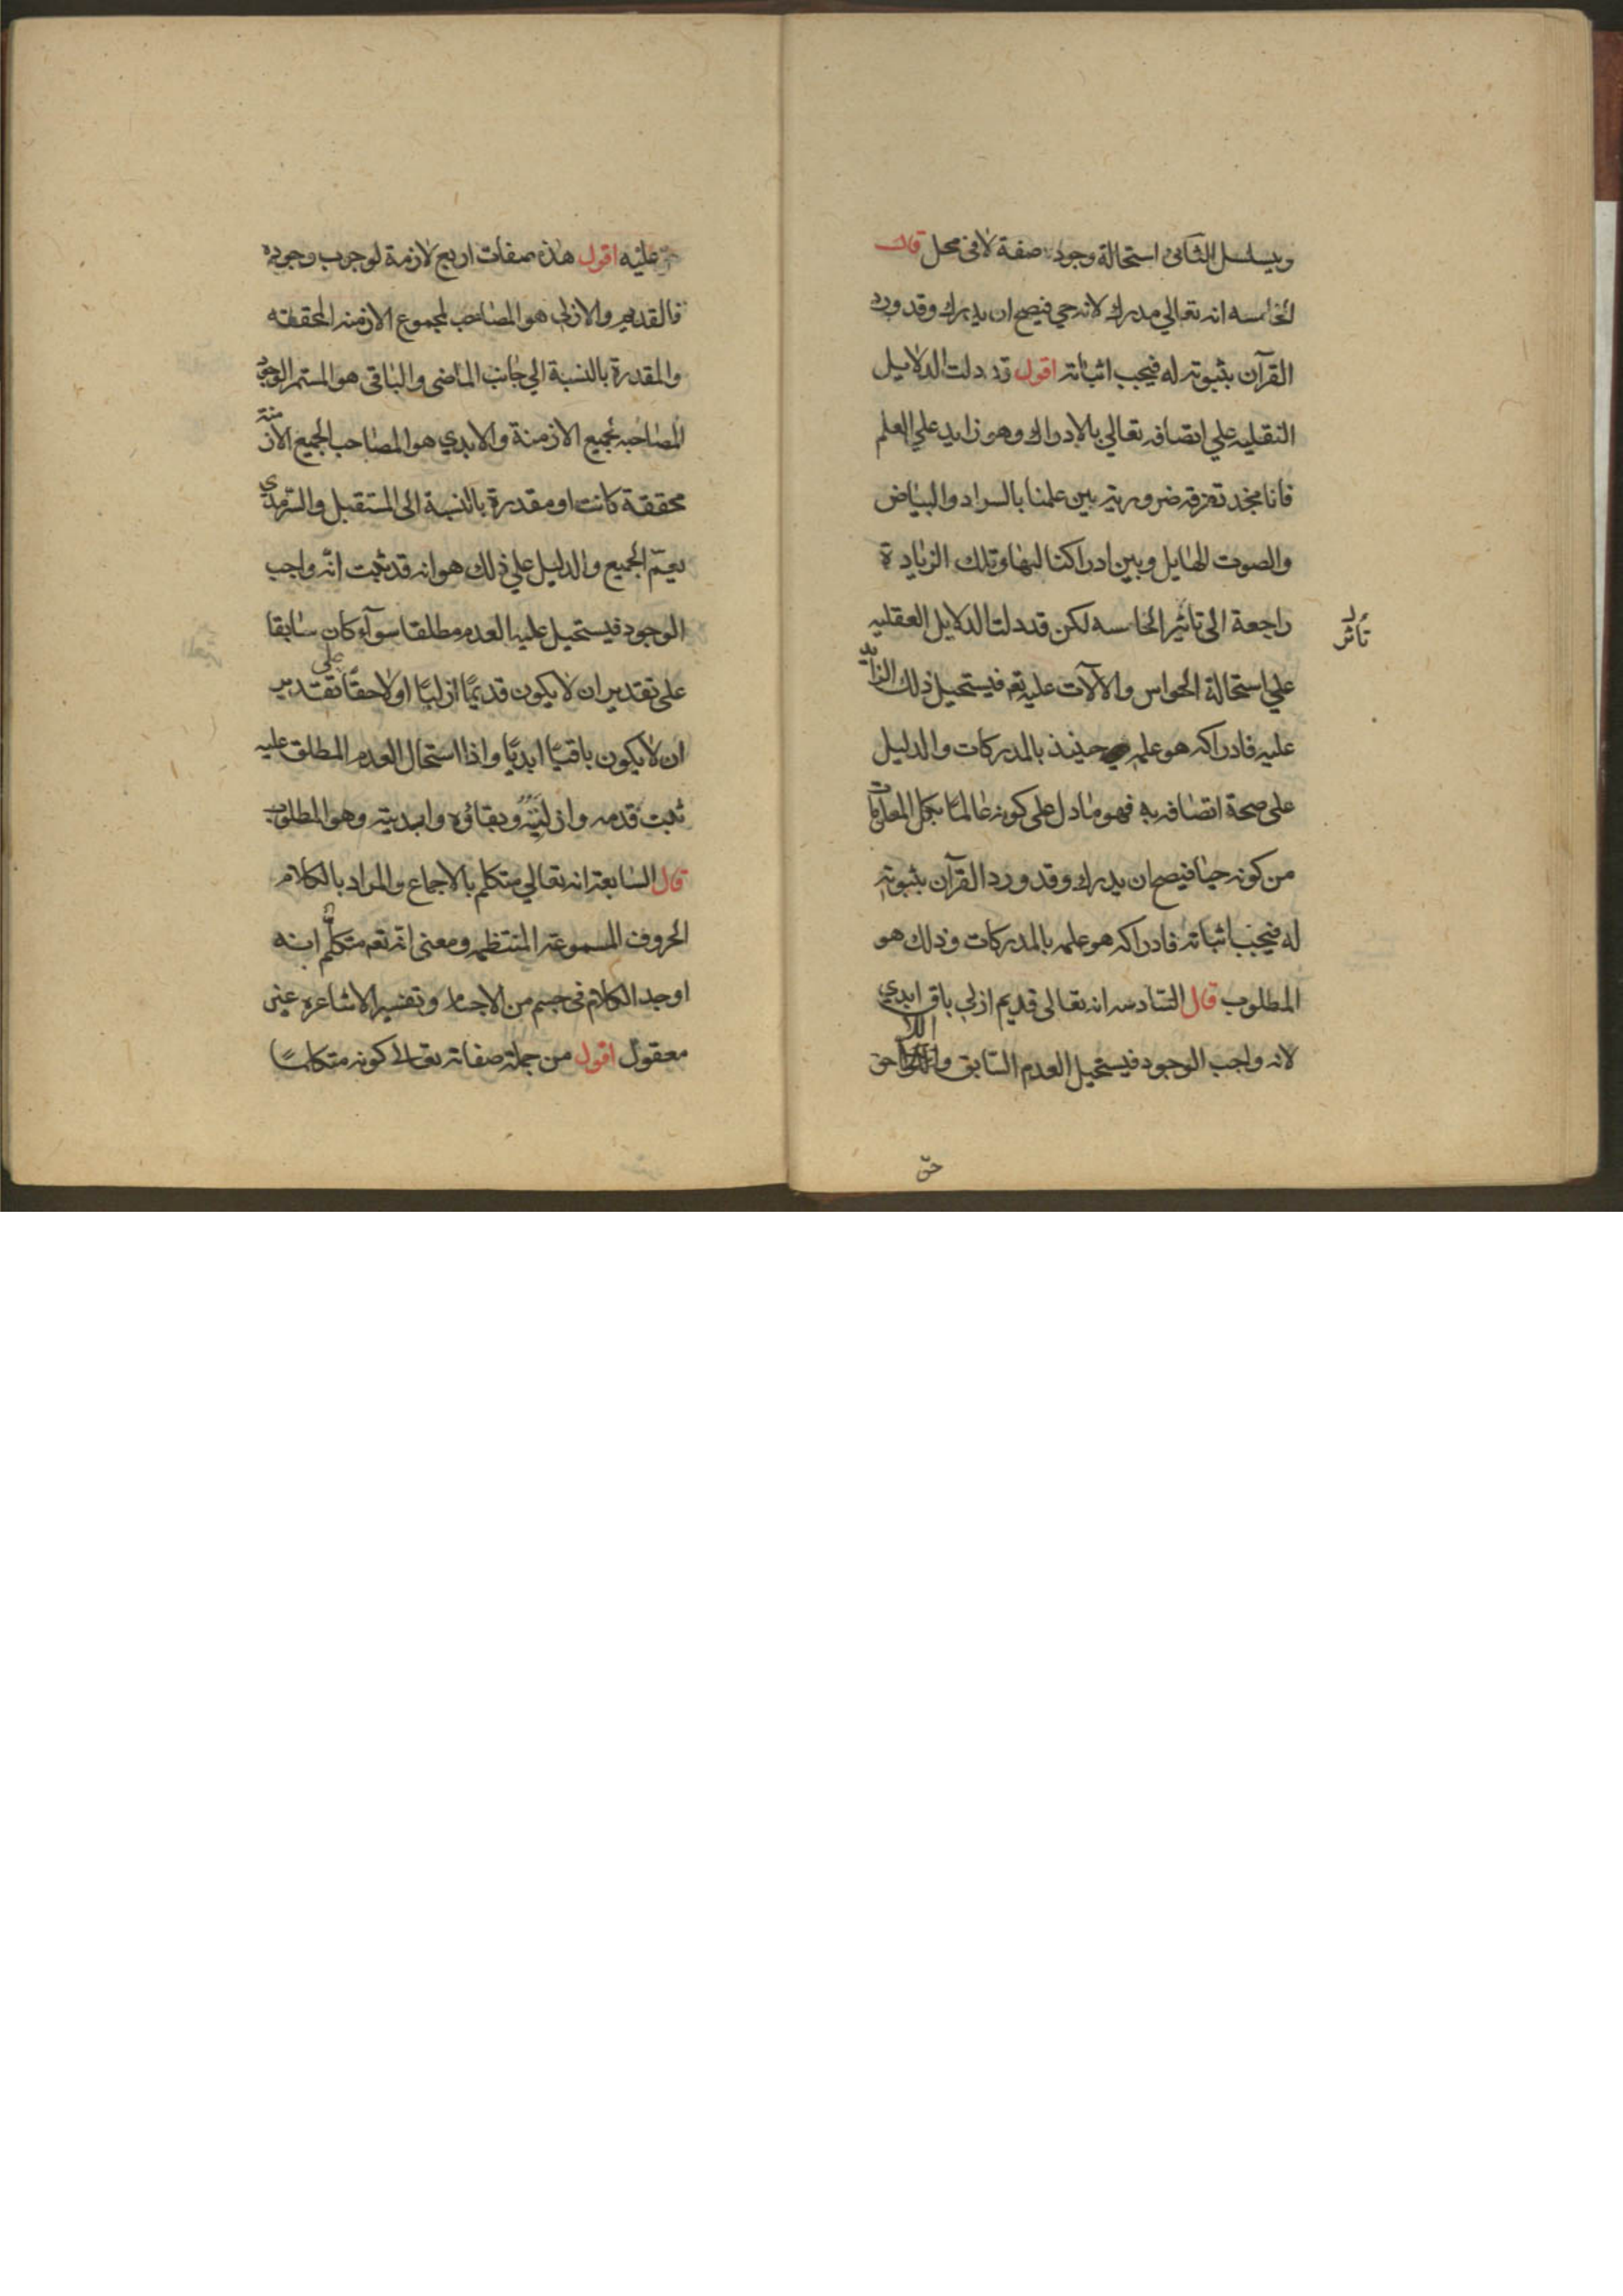 ويتسلسل الثانى استحالة وجود صفة لا فى محل قال
الخامسه انه تعالي مدرك لانه حي فيصح ان يدرك وقد ورد
القرآن بثبوته له فيجب اثباته اقول قد دلت الدلايل
النقليه علي اتصافه تعالي بالادراك وهو زايد علي العلم
فانا نجد تفرقه ضروريه بين علمنا بالسواد والبياض
والصوت الهايل وبين ادراكنا لها وتلك الزيادة
راجعة الى تاثير الحاسه لكن قد دلت الدلايل العقليه
تأثر
علي استحالة الحواس والآلات عليه تع فيستحيل ذلك الزايد
عليه فادراكه هو علمه حينئذ بالمدركات والدليل
على صحة اتصافه به فهو مادل على كونه عالما بكل المعلومات
من كونه حيا فيصح ان يدرك وقد ورد القرآن بثبوته
له فيجب اثباته فادراكه هو علمه بالمدركات وذلك هو
المطلوب قال السادسه انه تعالى قديم ازلي باق ابدي
لانه واجب الوجود فيستحيل العدم السابق واللاحق
عليه اقول هذه صفات اربع لازمة لوجوب وجوده
فالقديم والازلي هو المصاحب لمجموع الازمنه المحققه
والمقدرة بالنسبة الي جانب الماضى والباقى هو المستمر الوجود
المصاحبه لجميع الازمنة والابدي هو المصاحب لجميع الازمنة
محققة كانت او مقدرة بالنسبة الى المستقبل والسرمدي
يعمّ الجميع والدليل علي ذلك هو انه قد ثبت انّه واجب
الوجود فيستحيل عليه العدم مطلقا سوآء كان سابقا
على تقدير ان لا يكون قديمًا ازليا او لاحقًا على تقدير
ان لا يكون باقيًا ابديًا واذا استحال العدم المطلق عليه
ثبت قدمه وازليته وبقاؤه وابديته وهو المطلوب
قال السابعة انه تعالي متكلم بالاجماع والمراد بالكلام
الحروف المسموعة المنتظمه ومعنى انه تع متكلم انه
اوجد الكلام فى جسم من الاجسام وتفسير الاشاعره غير
معقول اقول من جملة صفاته تعالى كونه متكلمًا